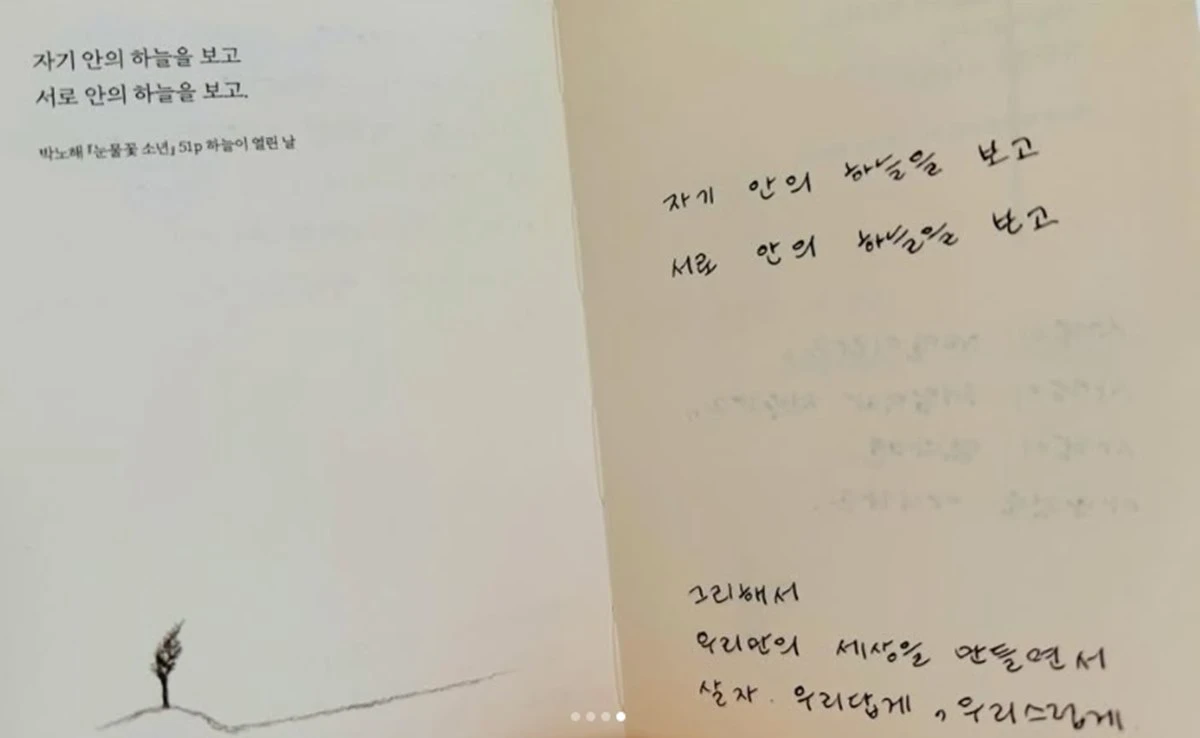 자기 안의 하늘을 보고
서로 안의 하늘을 보고.
박노해 『눈물꽃 소년』 51p 하늘이 열린 날
자기 안의 하늘을 보고
서로 안의 하늘을 보고
그리해서
우리만의 세상을 만들면서
살자. 우리답게, 우리스럽게